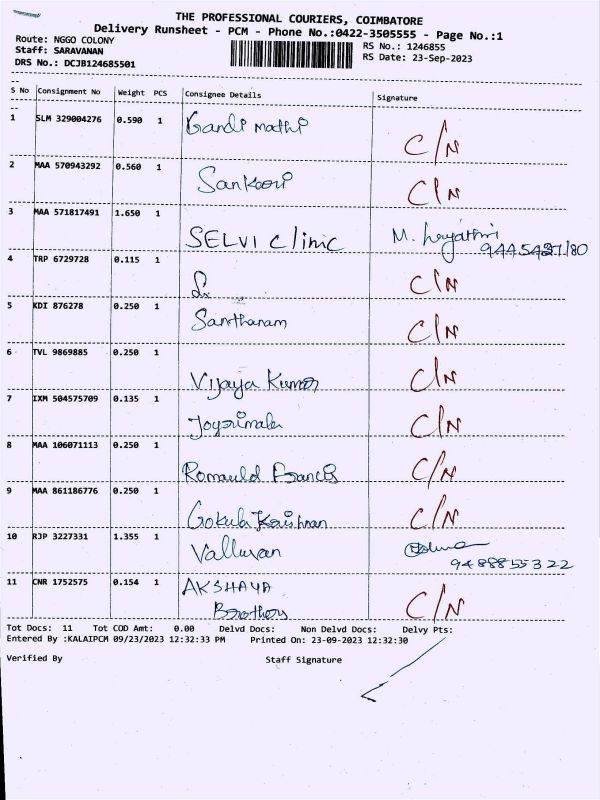 THE PROFESSIONAL COURIERS, COIMBATORE
Delivery Runsheet - PCM - Phone No.:0422-3505555 - Page No.:1
Route: NGGO COLONY
RS No.: 1246855
Staff: SARAVANAN
RS Date: 23-Sep-2023
DRS No.: DCJB124685501
S No Consignment No Weight PCS Consignee Details Signature
1 SLM 329004276 0.590 1 Gandimathi C/N
2 MAA 570943292 0.560 1 Sankari C/N
3 MAA 571817491 1.650 1 SELVI Clinic M.
4 TRP 6729728 0.115 1 C/N
5 KDI 876278 0.250 1 Santhanam C/N
6 TVL 9869885 0.250 1 Vijaya Kumar C/N
7 IXM 504575709 0.135 1 C/N
8 MAA 106071113 0.250 1 Romauld Francis C/N
9 MAA 861186776 0.250 1 Gokula Krishnan C/N
10 RJP 3227331 1.355 1 Valluvan
9488855322
11 CNR 1752575 0.154 1 AKSHAYA
Brothers C/N
Tot Docs: 11 Tot COD Amt: 0.00 Delvd Docs: Non Delvd Docs: Delvy Pts:
Entered By :KALAIPCM 09/23/2023 12:32:33 PM Printed On: 23-09-2023 12:32:30
Verified By Staff Signature